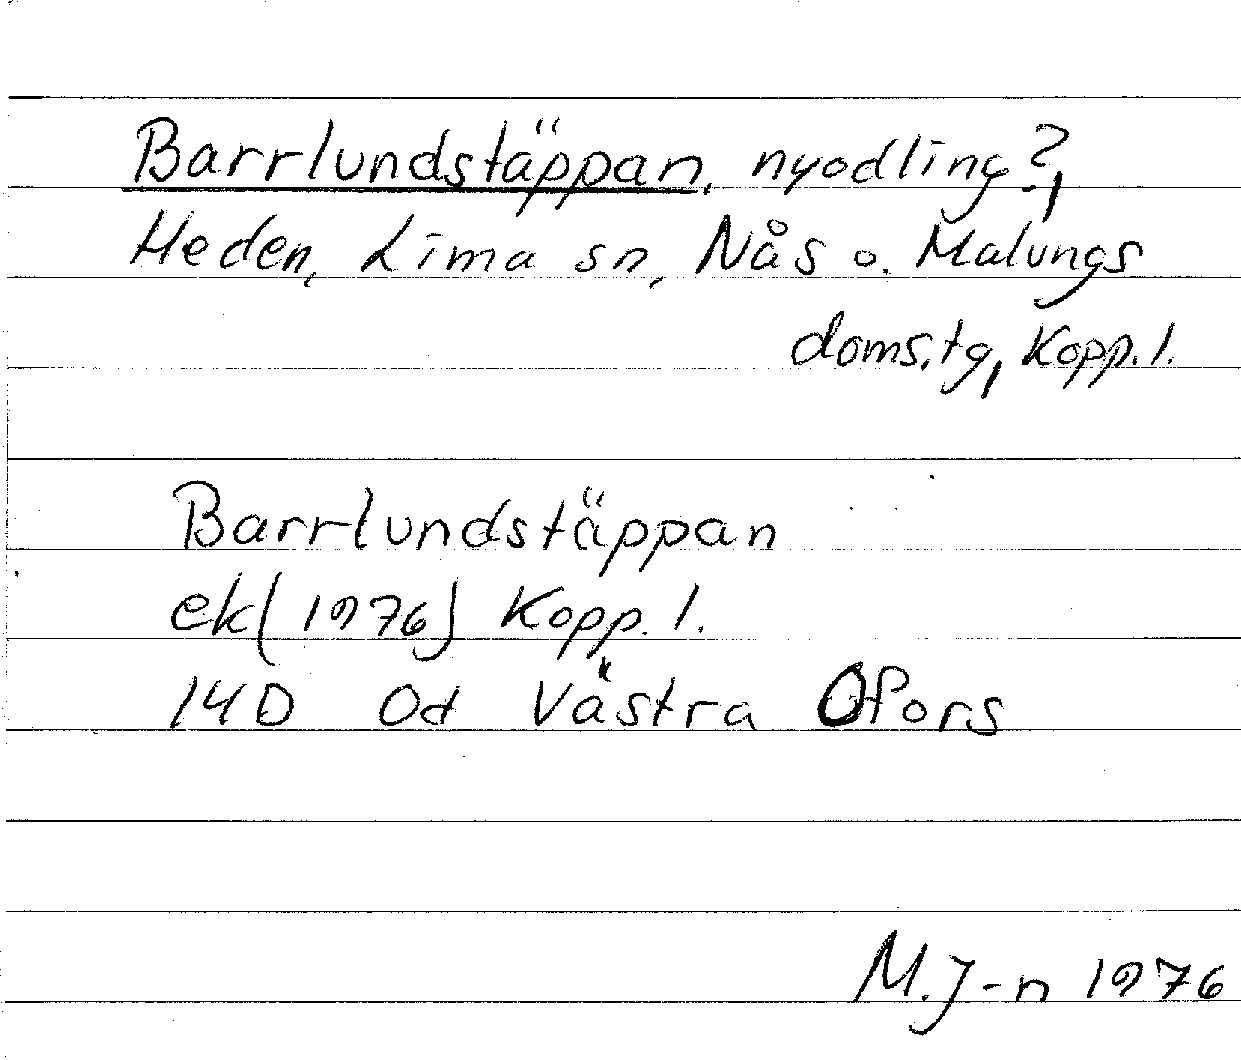 Barrlundstäppan, nyodling?,
Heden, Lima sn, Nås o. Malungs
doms.tg, Kopp. l.
Barrlundstäppan
ek(1976) Kopp. l.
14D 0d Västra Ofors
M.J-n 1976